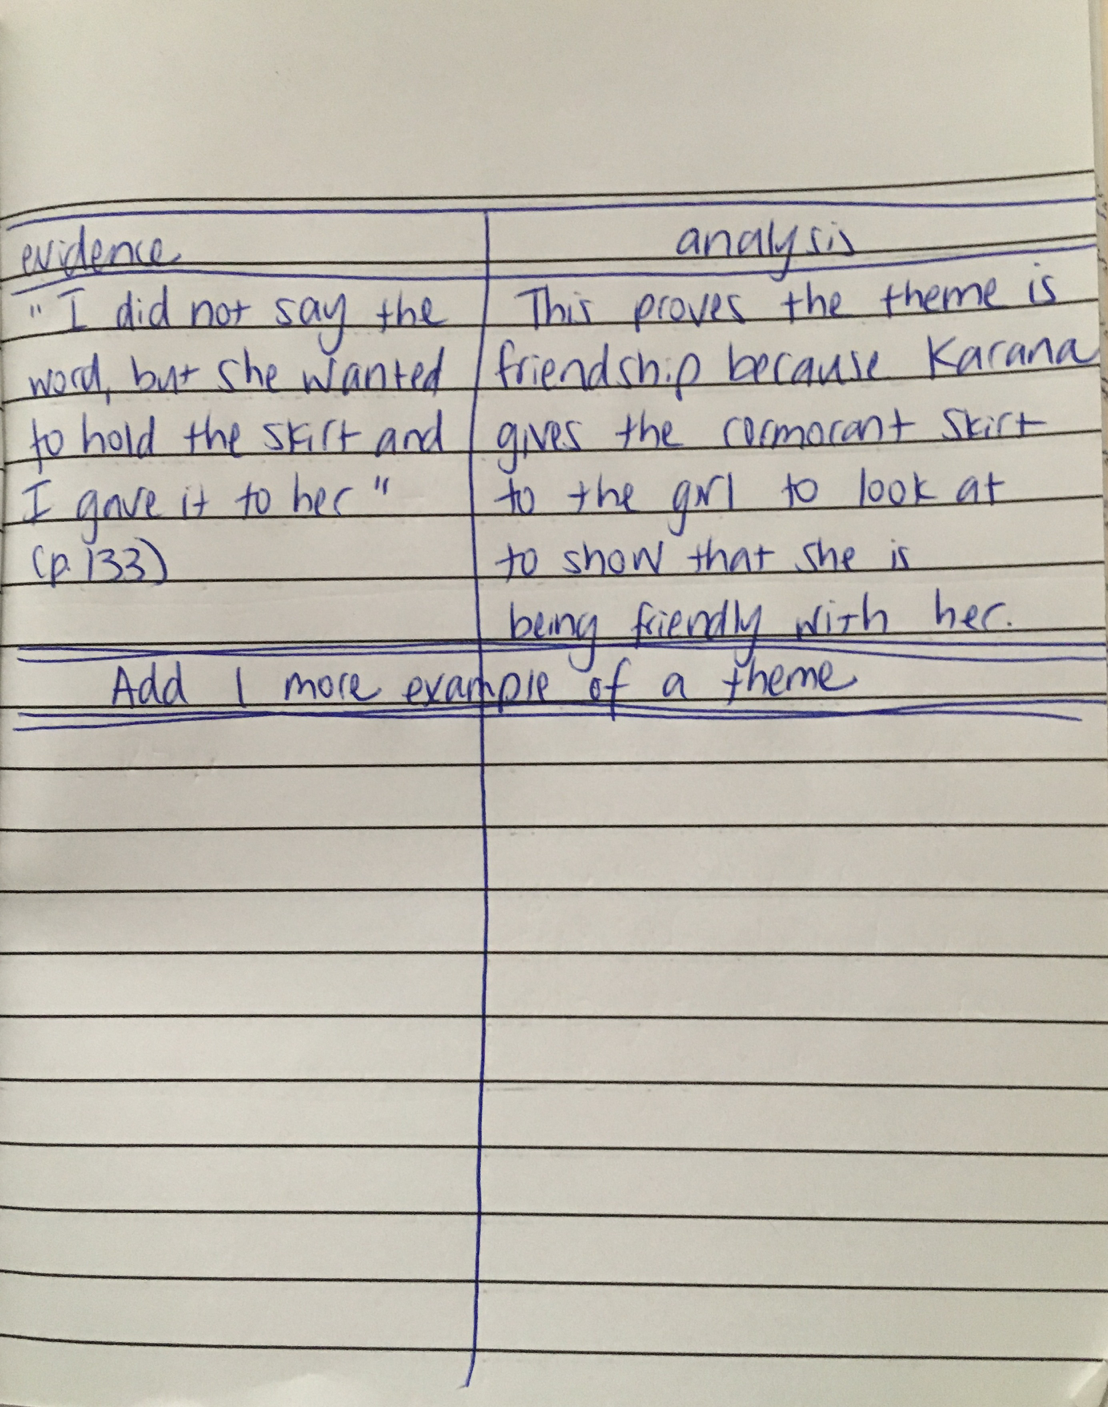 evidence
analysis
"I did not say the
word, but she wanted
to hold the skirt and
I gave it to her"
(p. 133)
This proves the theme is
friendship because Karana
gives the cormorant skirt
to the girl to look at
to show that she is
being friendly with her.
Add 1 more example of a theme